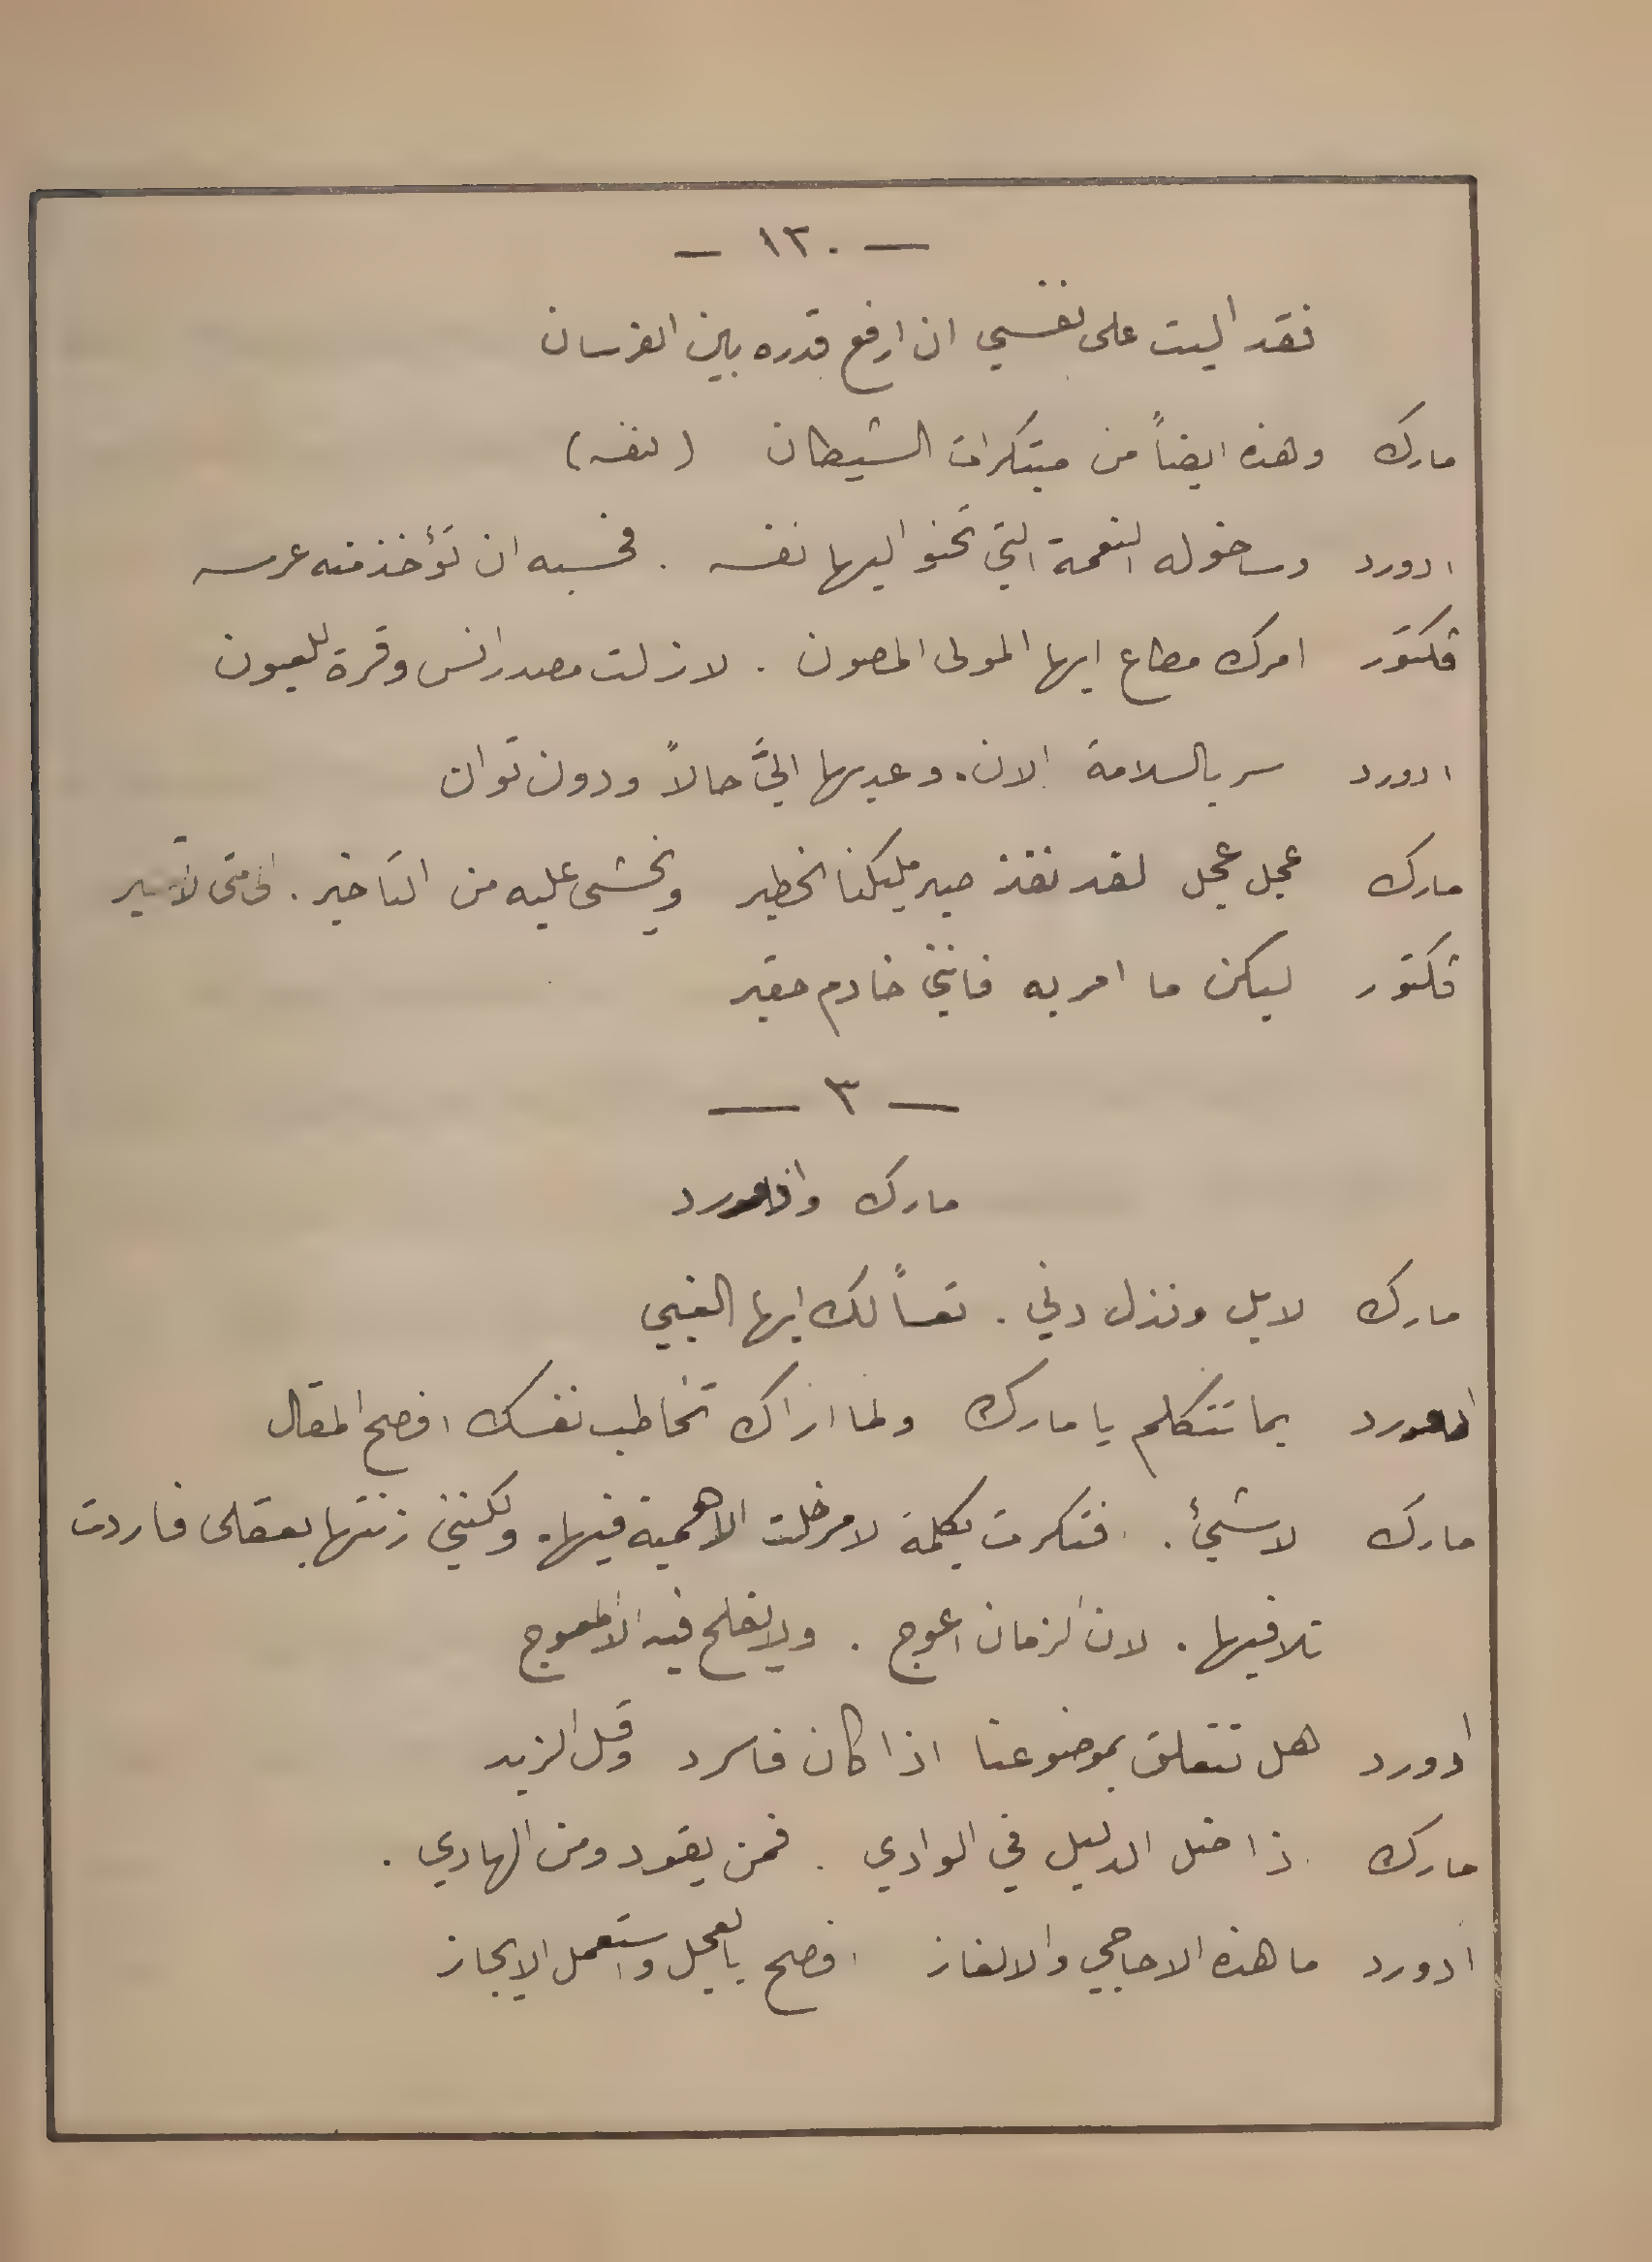 — ١٢٠ —
فقد اليت على نفسي ان ارفع قدره بين الفرسان
مارك وهذه ايضاً من مبتكرات الشيطان (لنفسه)
ادورد وساخوله النعمة التي تحنو اليها نفسه . فحسبه ان تؤخذ منه عرسه
ڤكتور امرك مطاع ايها المولى المصون . لا زلت مصدر انس وقرة للعيون
ادورد سر بالسلامة الان . وعد بها اليَّ حالاً ودون توان
مارك عجل عجل لقد نفذ صبر مليكنا الخطير ويخشى عليه من التأخير . الى متى لا تسير
ڤكتور ليكن ما امر به فانني خادم حقير
— ٣ —
مارك وادورد
مارك لا بل ونذل دني . تعساً لك ايها الغبي
ادورد بما تتكلم يا مارك ولما اراك تخاطب نفسك افصح المقال
مارك لا شيئ . افتكرت بكلمة لامر خلت الاهمية فيها . ولكنني زنتها بعقلي فاردت
تلافيها . لان الزمان اعوج . ولا يفلح فيه الا المعوج
ادورد هل تتعلق بموضوعنا اذا كان فاسرد وقل المزيد
مارك اذا ضل الدليل في الوادي . فمن يقود ومن الهادي .
ادورد ما هذه الاحاجي والالغاز افصح بالعجل واستعمل الايجاز